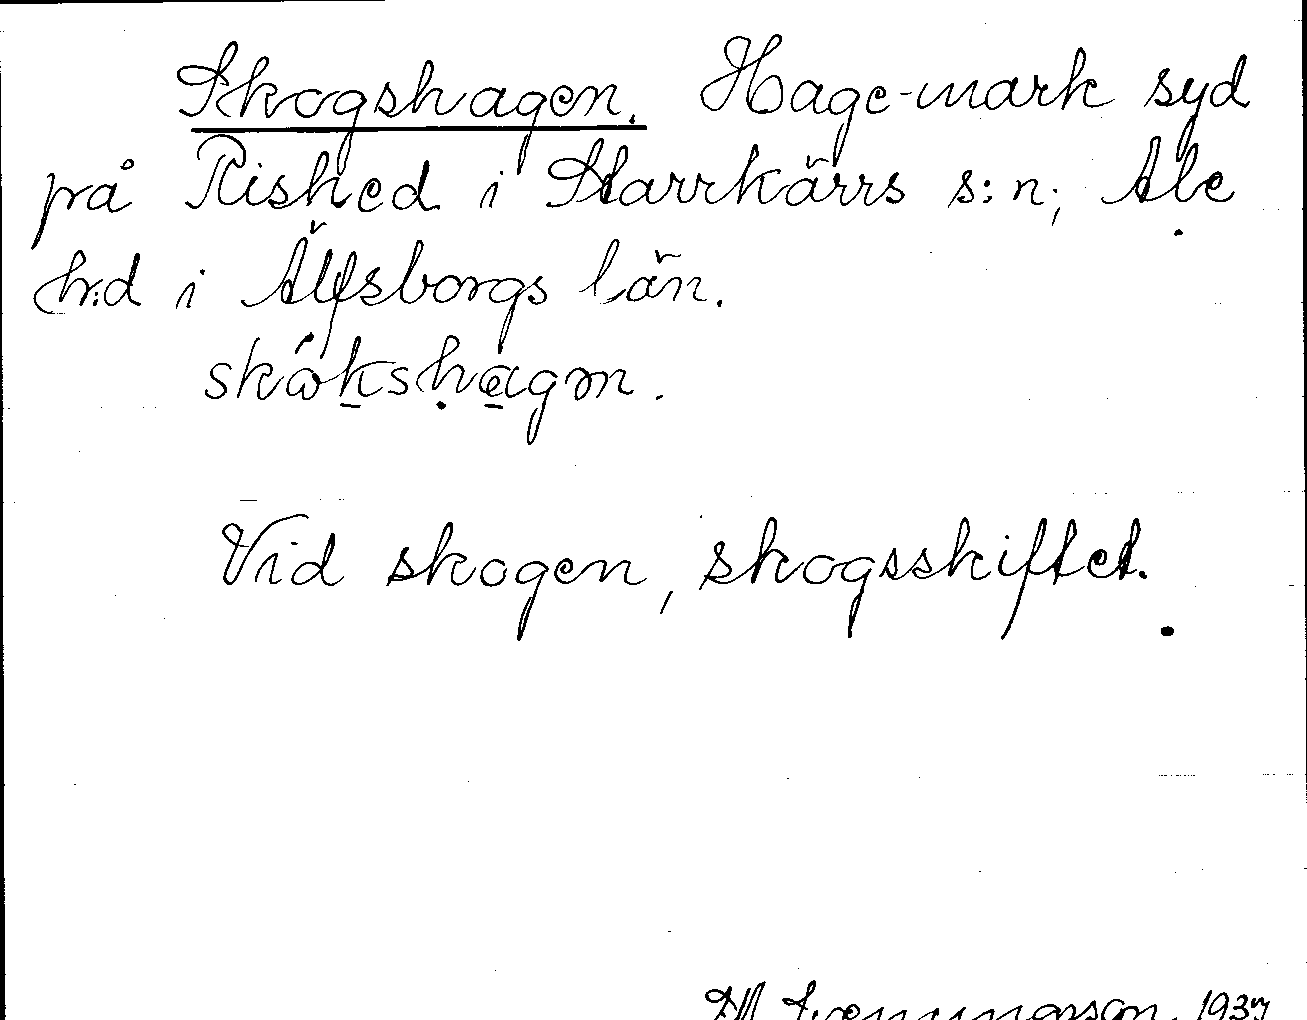 Skogshagen. Hage-mark syd
på Rished i Starrkärrs s:n; Ale
h:d i Älfsborgs län.
skåkshagən.
Vid skogen, skogsskiftet.
1937